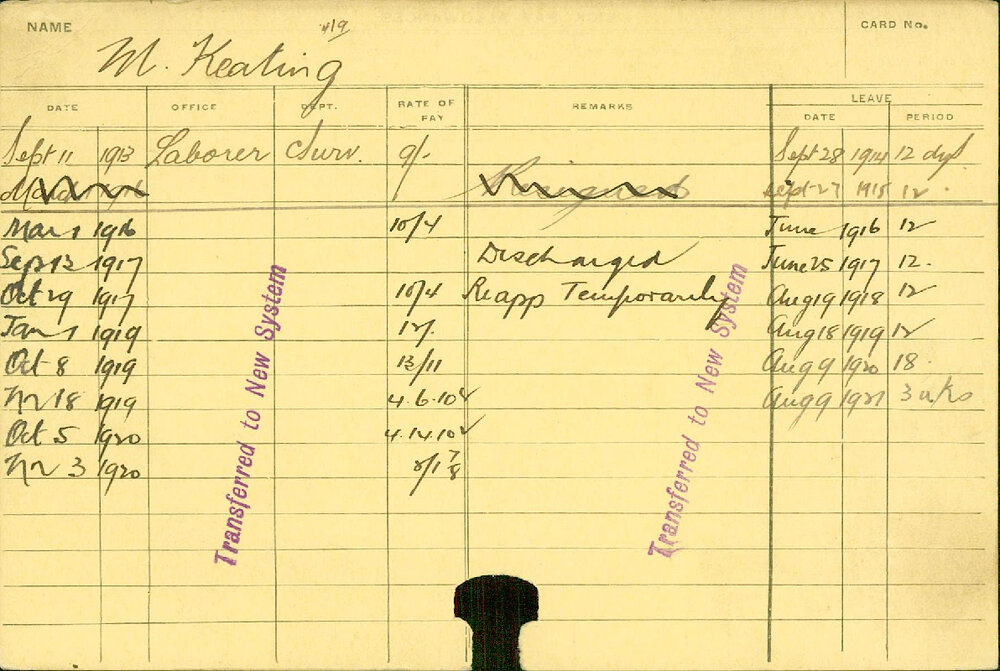 NAME
419
CARD No.
M. Keating
DATE OFFICE DEPT. RATE OF PAY REMARKS LEAVE
DATE PERIOD
Sept 11 1913 Laborer Surv. 9/- Sept 28 1914 12 dys
Sept 27 1915 12
Mar 1 1916 10/4 June 1916 12
Sep 13 1917 Discharged June 25 1917 12.
Oct 29 1917 10/4 Reapp Temporarily Aug 19 1918 12
Jan 1 1919 12/- Aug 18 1919 12
Oct 8 1919 13/11 Aug 9 1920 18.
Nv 18 1919 4.6.10 Aug 9 1921 3 wks
Oct 5 1920 4.14.10
Nv 3 1920
Transferred to New System
Transferred to New System